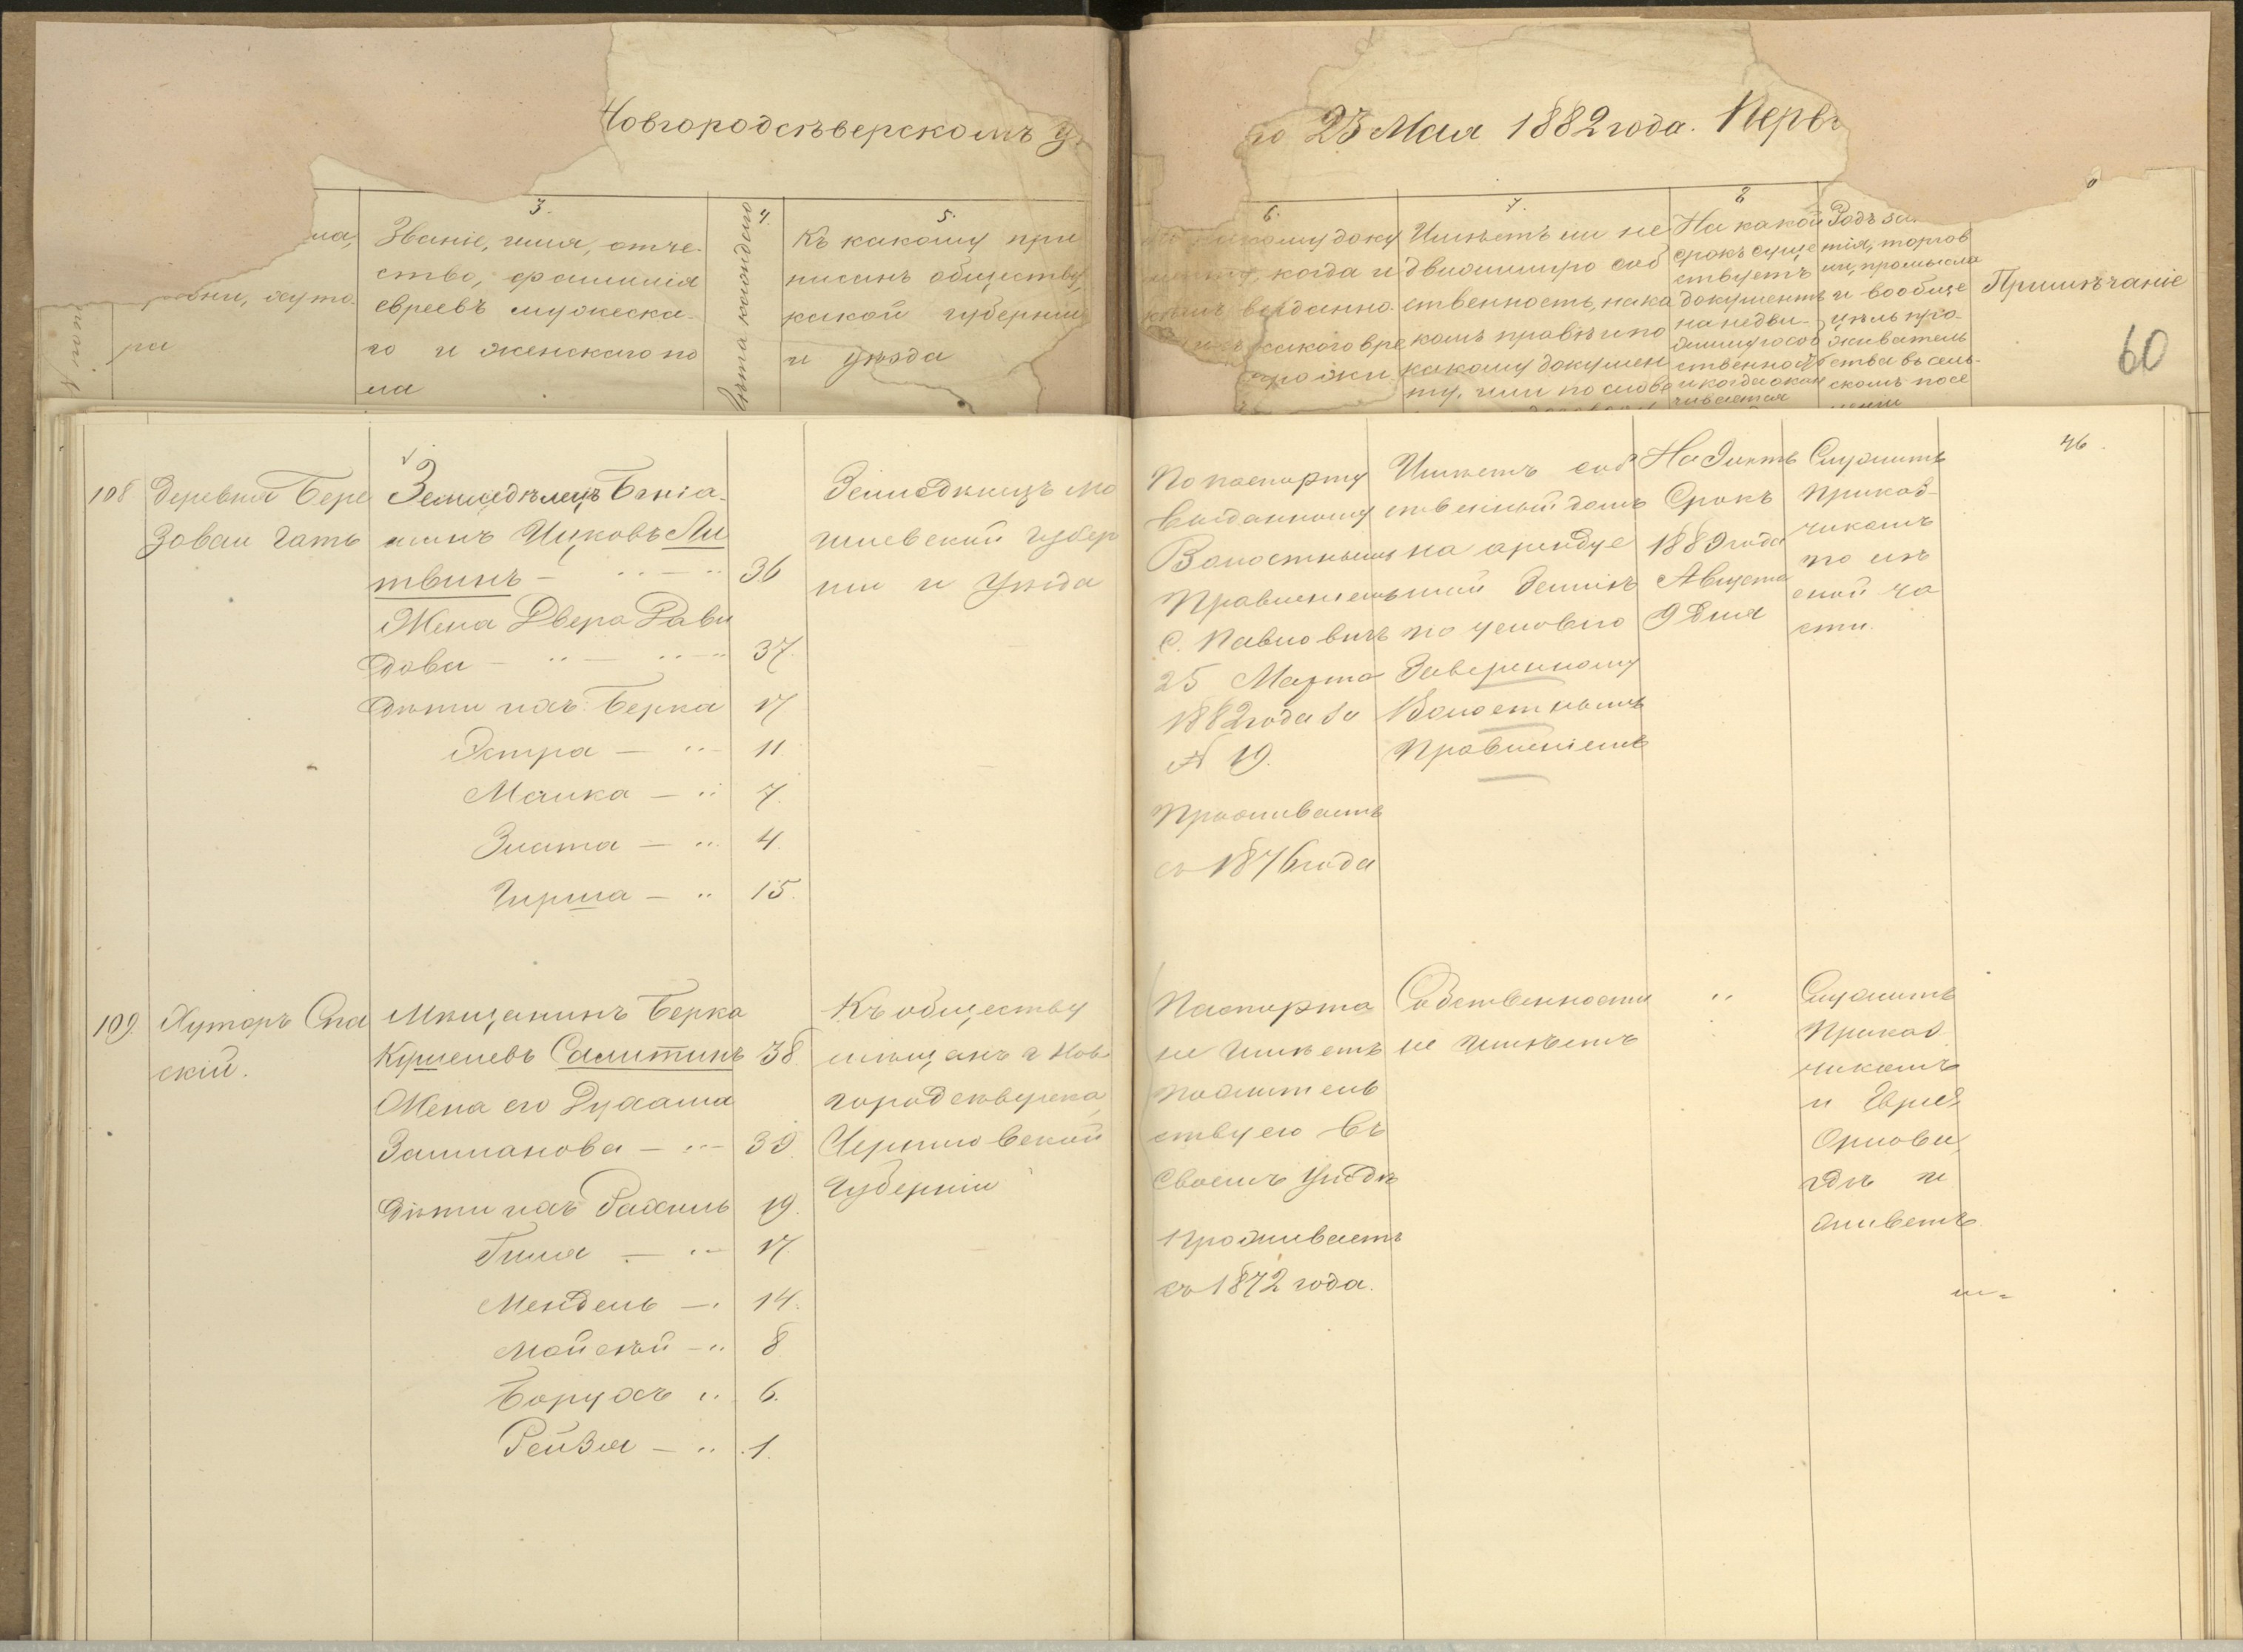 Новгородсѣверскомъ у
го 25 Мая 1882 года. Перв
3.
4.
5.
6.
7.
8
Званіе, имя, отче-
ство, фамилія
евреевъ мужеска-
го и женскаго по
ла
Лѣта каждаго
Къ какому при
писанъ обществу,
какой губерніи
и уѣзда
какому доку
когда и
выданно
какого вре
Имѣетъ ли не
движимую соб
ственность, на ка
комъ правѣ и по
какому докумен
ту, или по слове
На какой
срокъ суще
ствуетъ
документъ
на недви-
жимую соб
ственность
и когда окан
чивается
Родъ за
тія, торгов
ли, промысла
и вообще
цѣль про-
живатель
ства въ сель-
скомъ посе
леніи
Примѣчаніе
60
46.
108
Деревня Бере
зовая Гать
Земледѣлецъ Бенiа-
минъ Ицковъ Ли
твинъ - 36
Жена Двера Дави
дова - 37
Дѣти ихъ: Берка 17
Эстра - 11
Малка - 7.
Злата - 4
Гирша - 15.
Земледѣлецъ Мо
гилевской губер
ніи и уѣзда
По паспорту
выданному
Волостнымъ
Правленіемъ
с. Павловичъ
25 Марта
1882 года за
№ 19.
Проживаетъ
съ 1876 года
Имѣетъ соб
ственный домъ
на арендуе
мой землѣ
по условію
Заверенному
Волостнымъ
Правленіемъ
На 9 лѣтъ
Срокъ
1889 года
Августа
9 дня
Служитъ
приказ-
чикомъ
по лѣ
сной ча
сти.
109.
Хуторъ Спа
скій.
Мѣщанинъ Берка
Кушелевъ Самитинъ 38
Жена его Рухама
Залманова - 39.
Дѣти ихъ Рахиль 19.
Гиша - 17.
Мендель - 14.
Мойсѣй - 8
Борухъ 6.
Рейзя - 1.
Къ обществу
мѣщанъ г. Нов-
городсѣверска,
Черниговской
Губерніи
Паспорта
не имѣетъ
по житель
ству его въ
своемъ уѣздѣ
Проживаетъ
съ 1872 года.
Собственности
не имѣетъ
Служитъ
Приказ
чикомъ
Орлова,
гдѣ и
живетъ